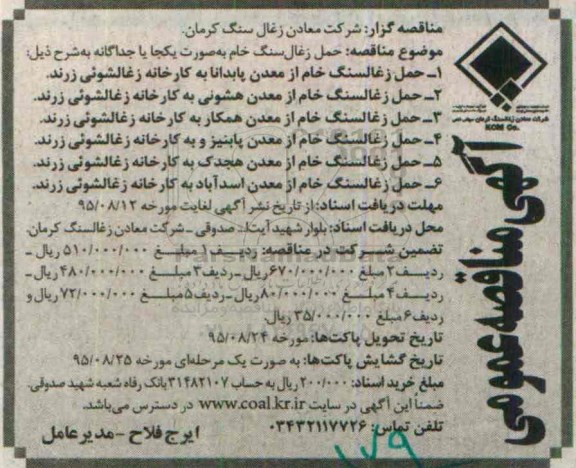 آگهی مناقصه عمومی
شرکت معادن زغالسنگ کرمان
KCM Co.
مناقصه گزار: شرکت معادن زغال سنگ کرمان.
موضوع مناقصه: حمل زغال‌سنگ خام به‌صورت یکجا یا جداگانه به‌شرح ذیل:
۱ـ حمل زغالسنگ خام از معدن پابدانا به کارخانه زغالشوئی زرند.
۲ـ حمل زغالسنگ خام از معدن هشونی به کارخانه زغالشوئی زرند.
۳ـ حمل زغالسنگ خام از معدن همکار به کارخانه زغالشوئی زرند.
۴ـ حمل زغالسنگ خام از معدن پابنیز و به کارخانه زغالشوئی زرند.
۵ـ حمل زغالسنگ خام از معدن هجدک به کارخانه زغالشوئی زرند.
۶ـ حمل زغالسنگ خام از معدن اسدآباد به کارخانه زغالشوئی زرند.
مهلت دریافت اسناد: از تاریخ نشر آگهی لغایت مورخه ۹۵/۰۸/۱۲
محل دریافت اسناد: بلوار شهید آیت‌ا... صدوقی ـ شرکت معادن زغالسنگ کرمان.
تضمین شرکت در مناقصه: ردیف ۱ مبلغ ۵۱۰/۰۰۰/۰۰۰ ریال ـ
ردیف ۲ مبلغ ۶۷۰/۰۰۰/۰۰۰ ریال ـ ردیف ۳ مبلغ ۴۸۰/۰۰۰/۰۰۰ ریال ـ
ردیف ۴ مبلغ ۸۰/۰۰۰/۰۰۰ ریال ـ ردیف ۵ مبلغ ۷۲/۰۰۰/۰۰۰ ریال و
ردیف ۶ مبلغ ۳۵/۰۰۰/۰۰۰ ریال.
تاریخ تحویل پاکت‌ها: مورخه ۹۵/۰۸/۲۴
تاریخ گشایش پاکت‌ها: به صورت یک مرحله‌ای مورخه ۹۵/۰۸/۲۵
مبلغ خرید اسناد: ۲۰۰/۰۰۰ ریال به حساب ۳۱۴۸۲۱۰۷ بانک رفاه شعبه شهید صدوقی.
ضمناً این آگهی در سایت www.coal.kr.ir در دسترس می‌باشد.
تلفن تماس: ۰۳۴۳۲۱۱۷۷۲۶
ایرج فلاح - مدیرعامل
۱۷۹